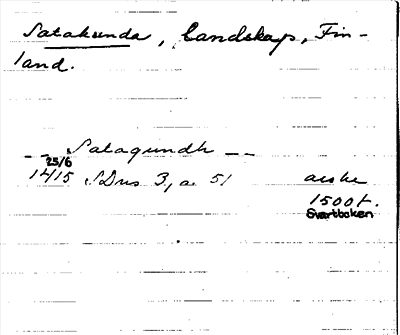 Satakunda, Landskap, Fin-
land.
-- Satagundh --
25/6
1415 SDns 3, a. 51 avskr
1500t.
Svartboken